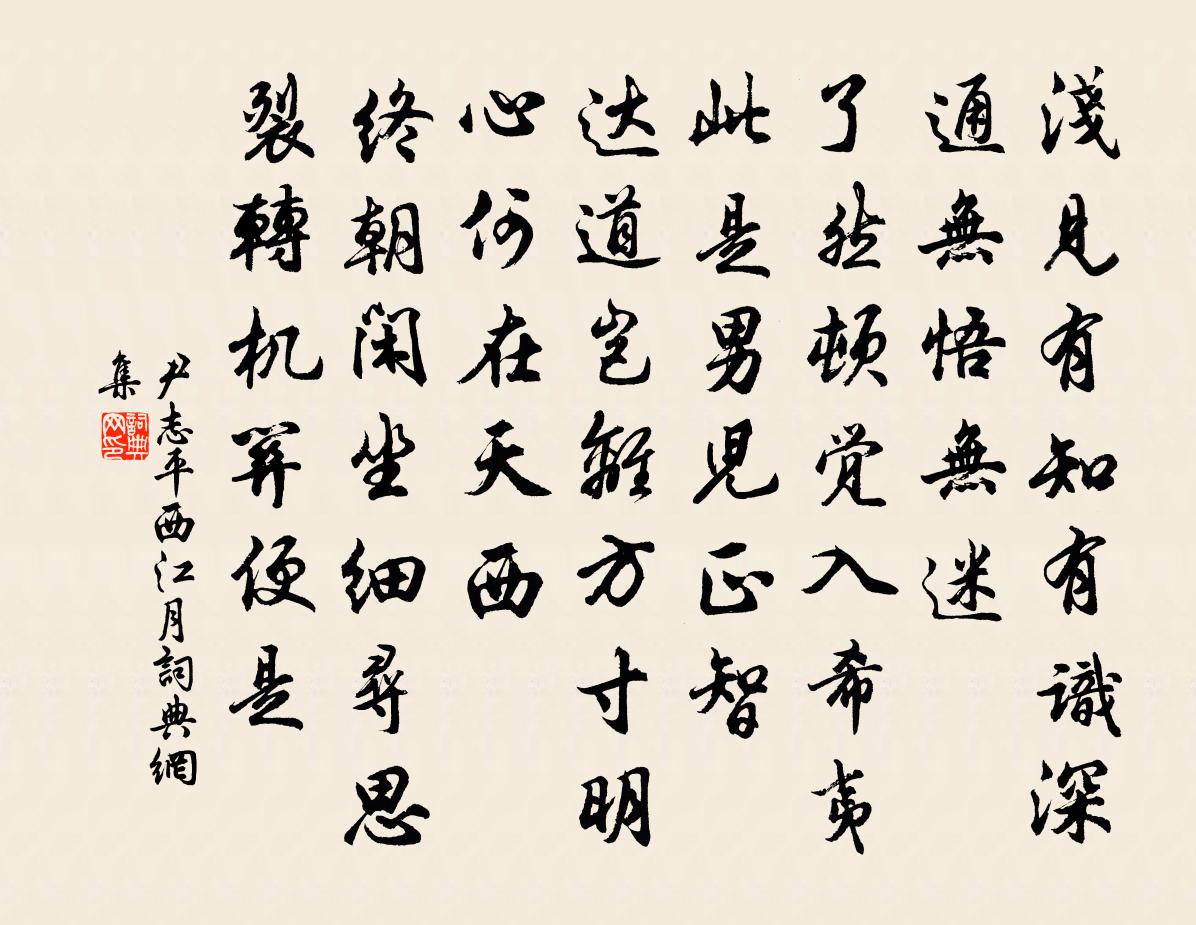 淺見有知有識深
通無悟無迷
了然頓觉入希夷
此是男児正智
达道岂離方寸明
心何在天西
終朝閑坐細尋思
裂轉机関便是
尹志平西江月詞典網
集
詞典
网印